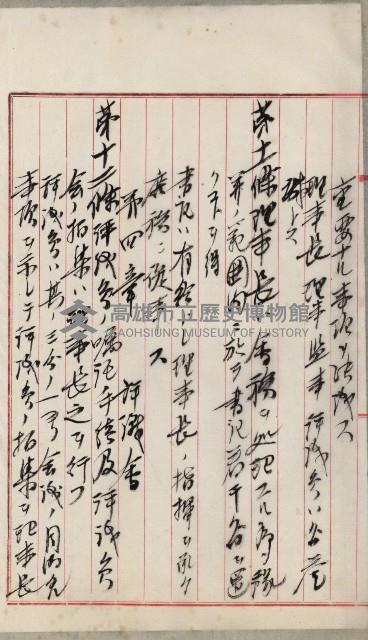 重要ナル事項ヲ評議ス
理事長、理事監事評議員ハ名誉
職トス
第十一條理事長ハ會務ヲ処理スル為予
算ノ範囲内ニ於テ書記若干名ヲ置
クコトヲ得
書記ハ有給トシ理事長ノ指揮ヲ承ケ
庶務ニ従事ス
第四章 評議會
第十二條評議員ノ嘱託手続及評議員
會ノ招集ハ理事長之ヲ行フ
評議員ハ其ノ三分ノ一ヨリ會議ノ目的タル
事項ヲ示シテ評議員ノ招集ヲ理事長
高雄市立歷史博物館
KAOHSIUNG MUSEUM OF HISTORY